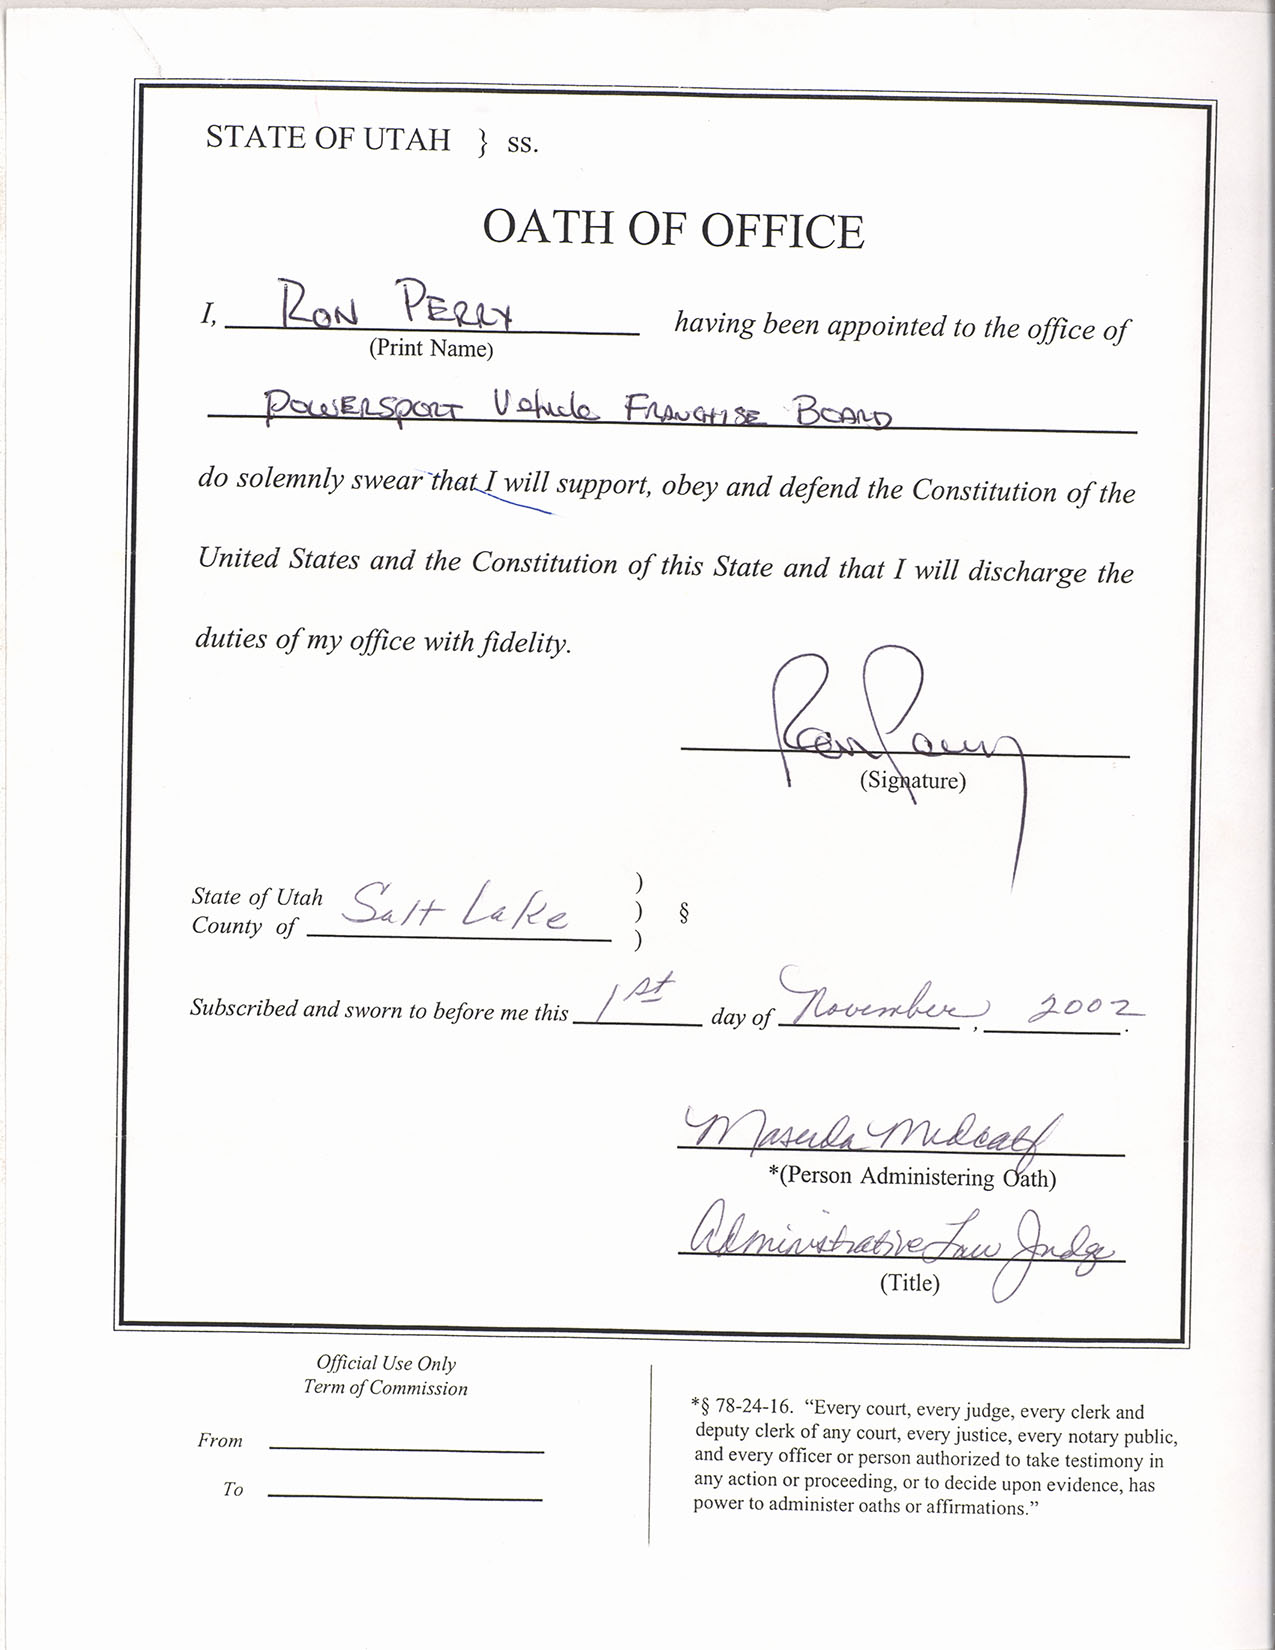 STATE OF UTAH } ss.
OATH OF OFFICE
I, RON PERRY having been appointed to the office of
(Print Name)
POWERSPORT Vehicle FRANCHISE BOARD
do solemnly swear that I will support, obey and defend the Constitution of the
United States and the Constitution of this State and that I will discharge the
duties of my office with fidelity.
Ron Perry
(Signature)
State of Utah )
County of Salt Lake ) §
)
Subscribed and sworn to before me this 1st day of November, 2002.
Medcalf
*(Person Administering Oath)
Administrative Law Judge
(Title)
Official Use Only
Term of Commission
From
To
*§ 78-24-16. “Every court, every judge, every clerk and
deputy clerk of any court, every justice, every notary public,
and every officer or person authorized to take testimony in
any action or proceeding, or to decide upon evidence, has
power to administer oaths or affirmations.”